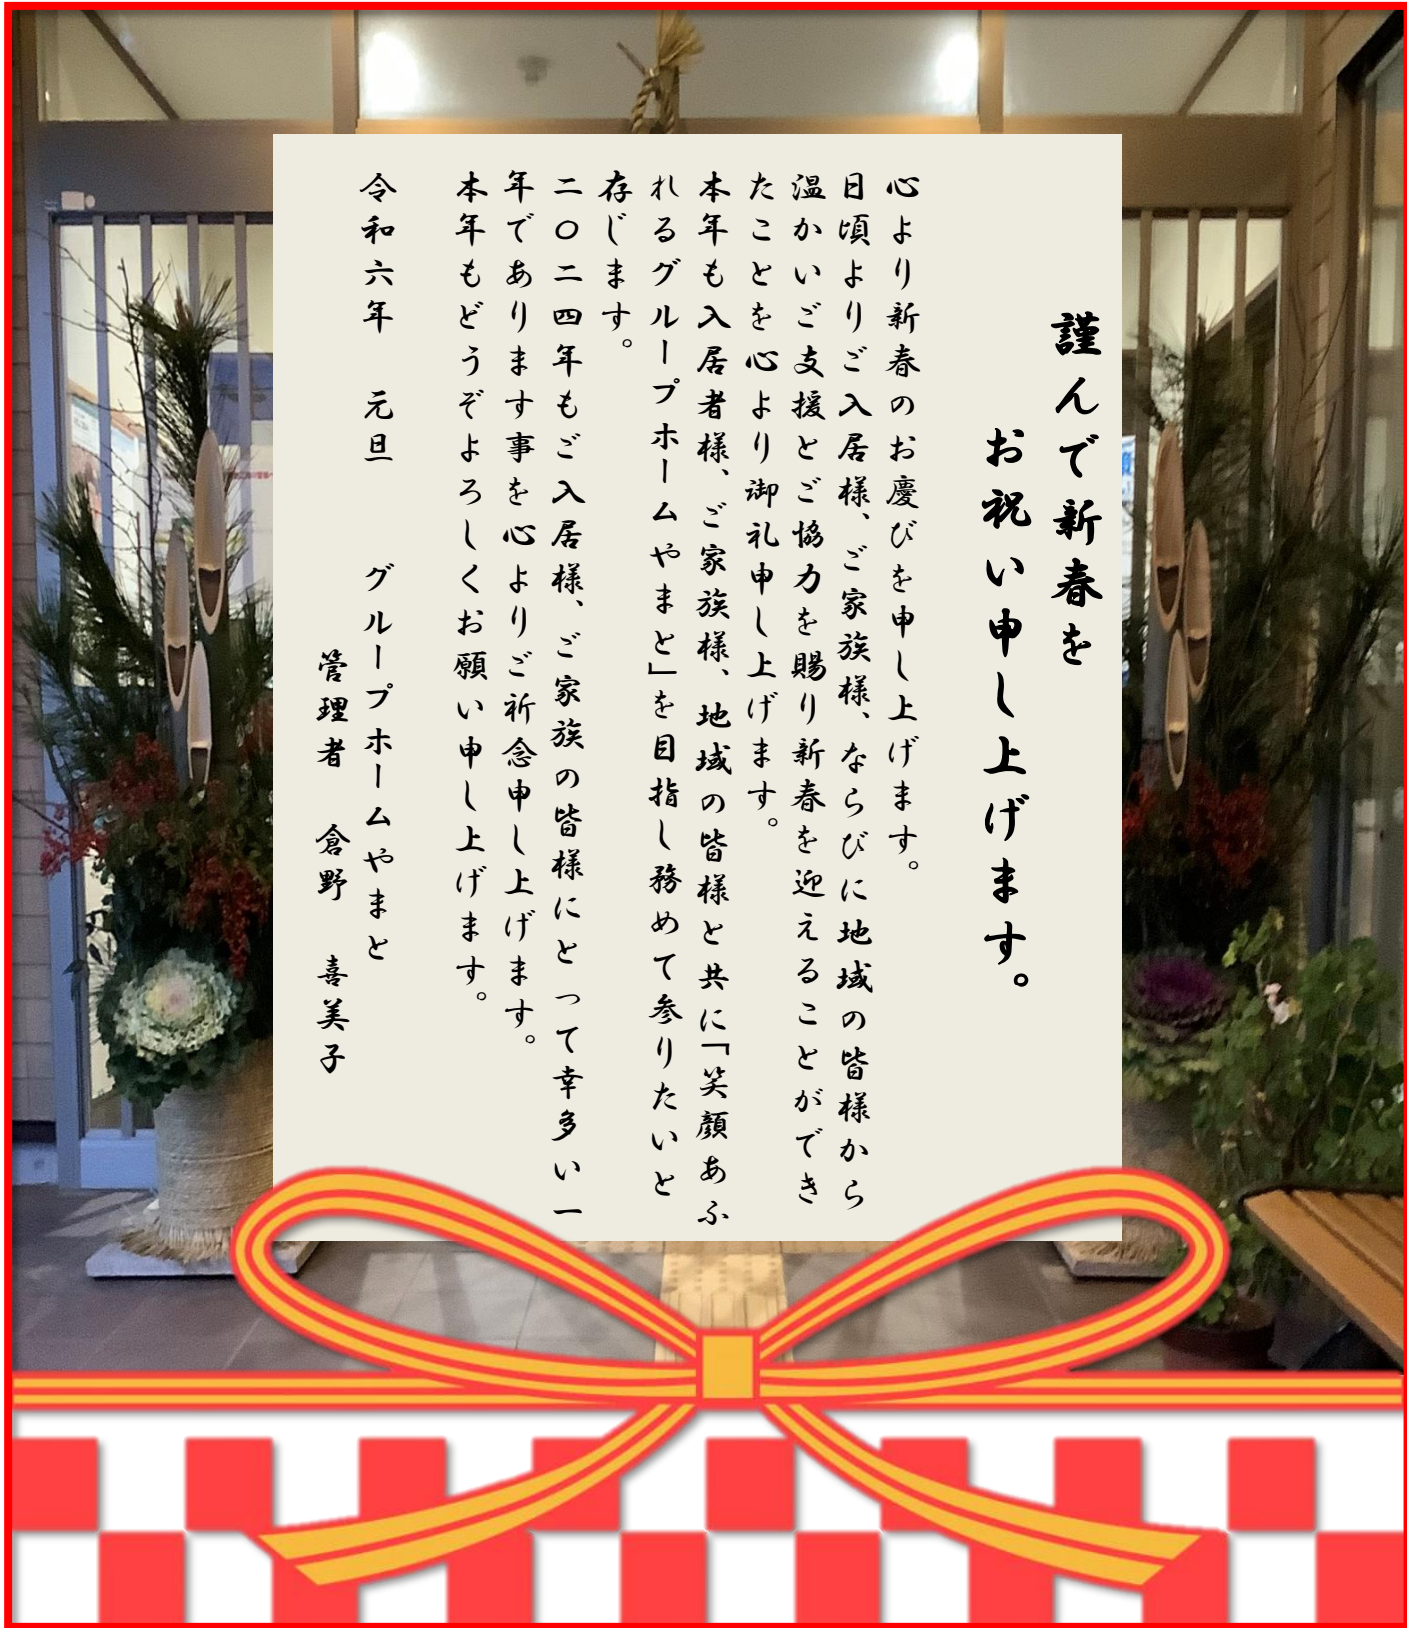 謹んで新春を
お祝い申し上げます。
心より新春のお慶びを申し上げます。
日頃よりご入居様、ご家族様、ならびに地域の皆様から
温かいご支援とご協力を賜り新春を迎えることができ
たことを心より御礼申し上げます。
本年も入居者様、ご家族様、地域の皆様と共に「笑顔あふ
れるグループホームやまと」を目指し務めて参りたいと
存じます。
二〇二四年もご入居様、ご家族の皆様にとって幸多い一
年であります事を心よりご祈念申し上げます。
本年もどうぞよろしくお願い申し上げます。
令和六年 元旦 グループホームやまと
管理者 倉野 喜美子